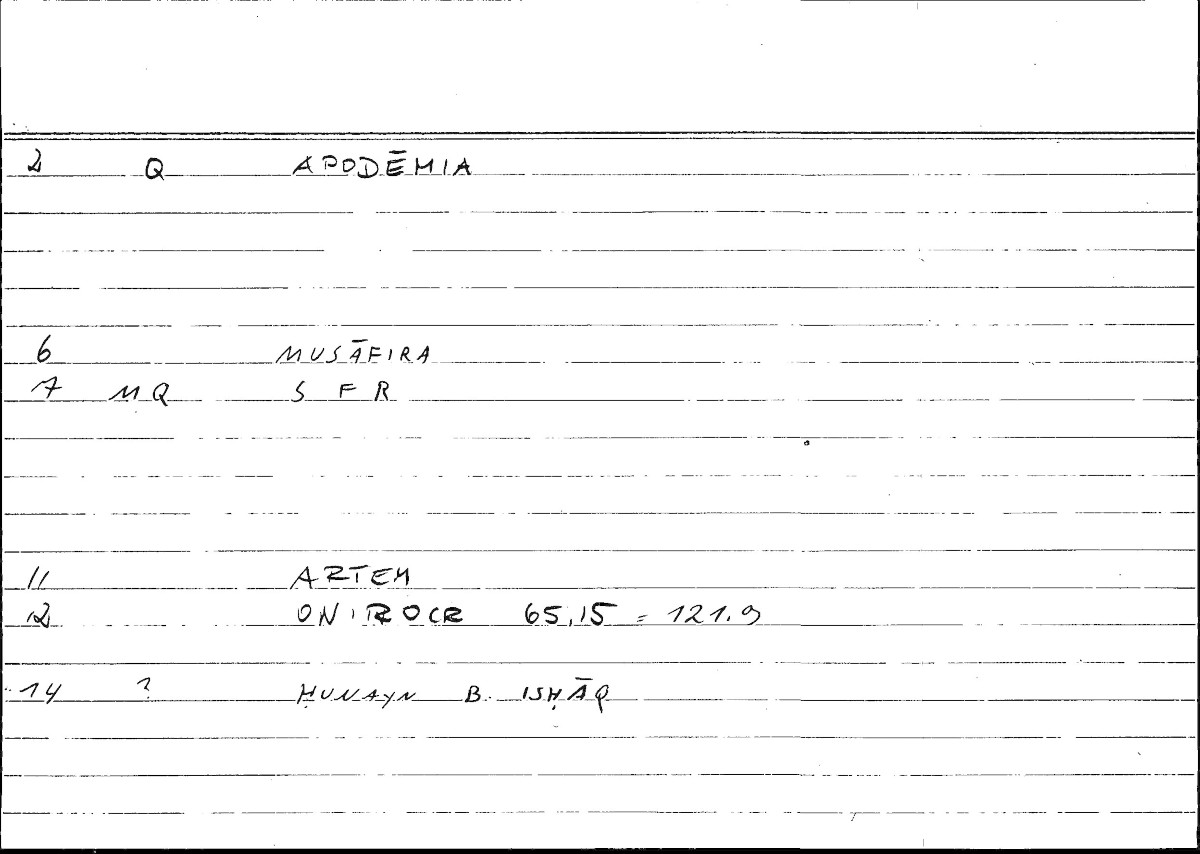 2 Q APODĒMIA
6 MUSĀFIRA
7 MQ S F R
11 ARTEM
12 ONIROCR 65,15 = 121.9
14 ? ḤUNAYN B. ISḤĀQ